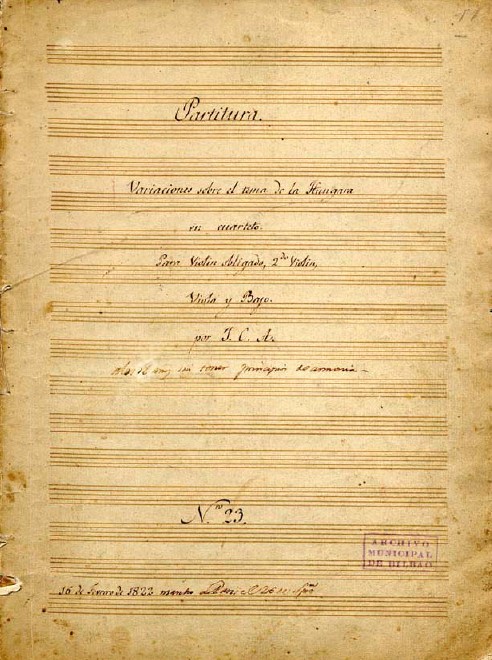 Partitura.
Variaciones sobre el tema de la Hungara
en cuarteto.
Para Violin obligado, 2.do Violin,
Viola y Bajo.
por J. C. A.
sin tener principios de armonia
N.ro 23.
ARCHIVO
MUNICIPAL
DE BILBAO
16 de Febrero de 1822